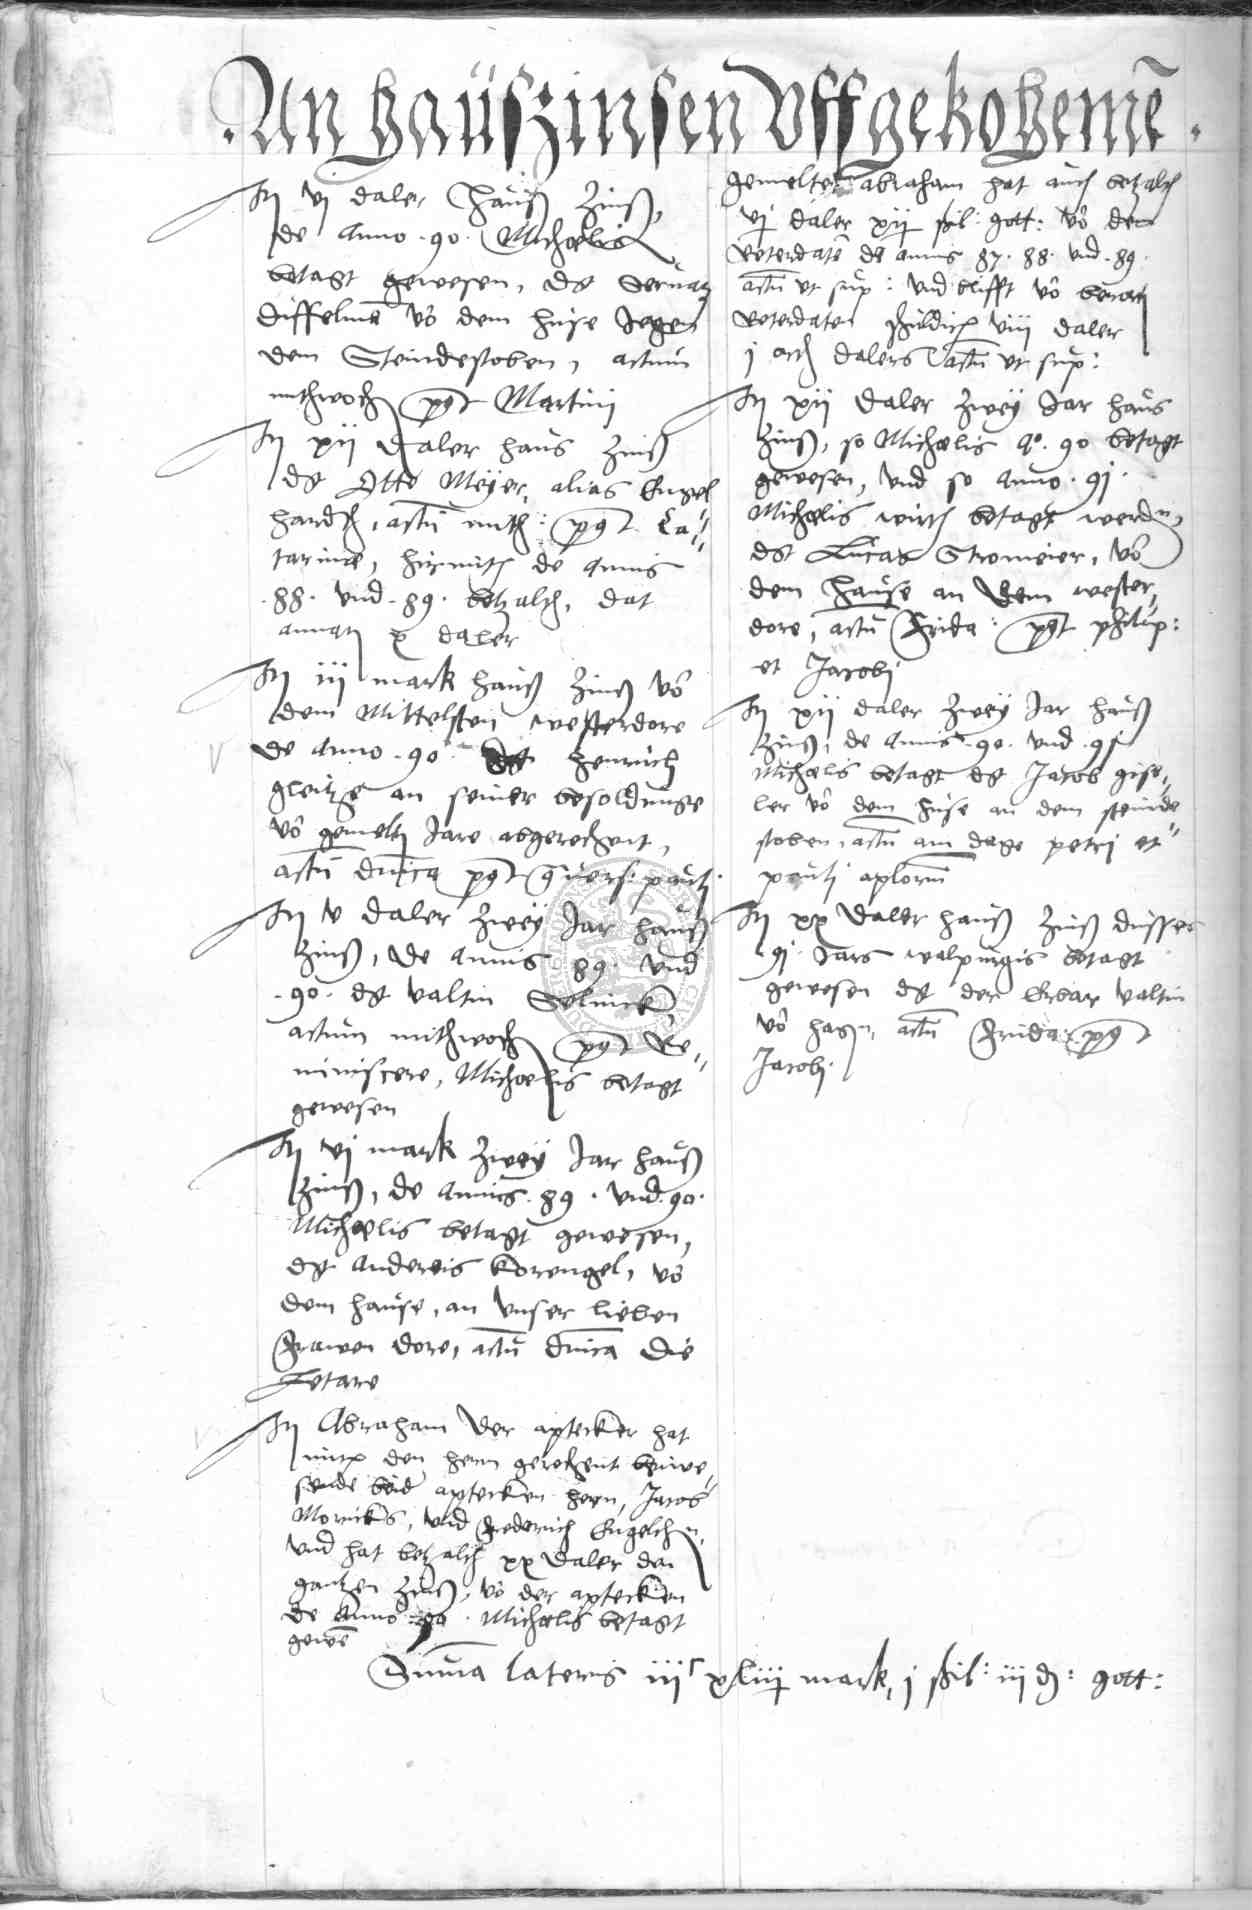 An haüszinsen Uffgekohemē
Itꝫ vj daler hauß zinß,
de Anno . 90 . Michaelis
betagt gewesen, dt Seruatz
Diffelmā vō dem huse iegen
dem Steindestoben, actum
mithwoch post Martinj
Itꝫ xij daler haus zinß
dt Otto Meyer, alias Engel
hardt, actū mith: post Ca"
tarinae, hirmith de annis
. 88 . vnd . 89 . betzalt, dat
x daler
Itꝫ iij mark hauß zinß vō
dem Mittelsten westerdore
de anno . 90 . dt Henrich
an seiner besoldunge
vō gemeltē Jare abgerechent,
actū dnica post Cōuers: paulj
Itꝫ v daler zwey Jar hauß
zinß, de annis 89 vnd
. 90 . dt Valtin
actum mithwoch post Re"
miniscere, Michaelis betagt
gewesen
Itꝫ vj mark zwey Jar hauß
zinß, de annis . 89 . vnd . 90 .
Michaelis betagt gewesen,
dt Andereis Korengel, vō
dem hause, an vnser lieben
frawen dore, actū dnica die
Letare
Itꝫ Abraham der aptecker hat
mit den hern gerechent
beid aptecken hern, Jacob
Mornicks, vnd frederich
vnd hat betzalt xx daler den
gantzen zinß, vō der aptecken
de Anno . 90 . Michaelis betagt
gewesē
gemelter abraham hat auch betzalt
vj daler xij ßil: gott: vō den
Reterdatē de annis 87 . 88 . vnd . 89 .
actū vt sup: vnd blifft vō
Reterdaten schuldich viij daler
j orth dalers actū vt sup:
Itꝫ xij daler zwey Jar haus
zinß, so Michaelis Aº. 90 betagt
gewesen, vnd so anno . 91 .
Michaelis wirth betagt werdn,
dt Lucas Stromeier, vō
dem hause an dem wester,
dore, actū frida: post philip:
et Jacobj
Itꝫ xij daler zwey Jar hauß
zinß, de annis . 90 . vnd . 91
Michaelis betagt dt Jacob gise"
ler vō dem huse an dem steinde
stoben, actū am dage petrj et"
paulj aplorum
Itꝫ xx daler hauß zinß disses
91 . Jars walpurgis betagt
gewesen dt der Erbar Valtin
vō hagn, actū frida: post
Jacobj.
Summa lateris iijᶜ xliij mark, j ßil: iij ₰: gott: